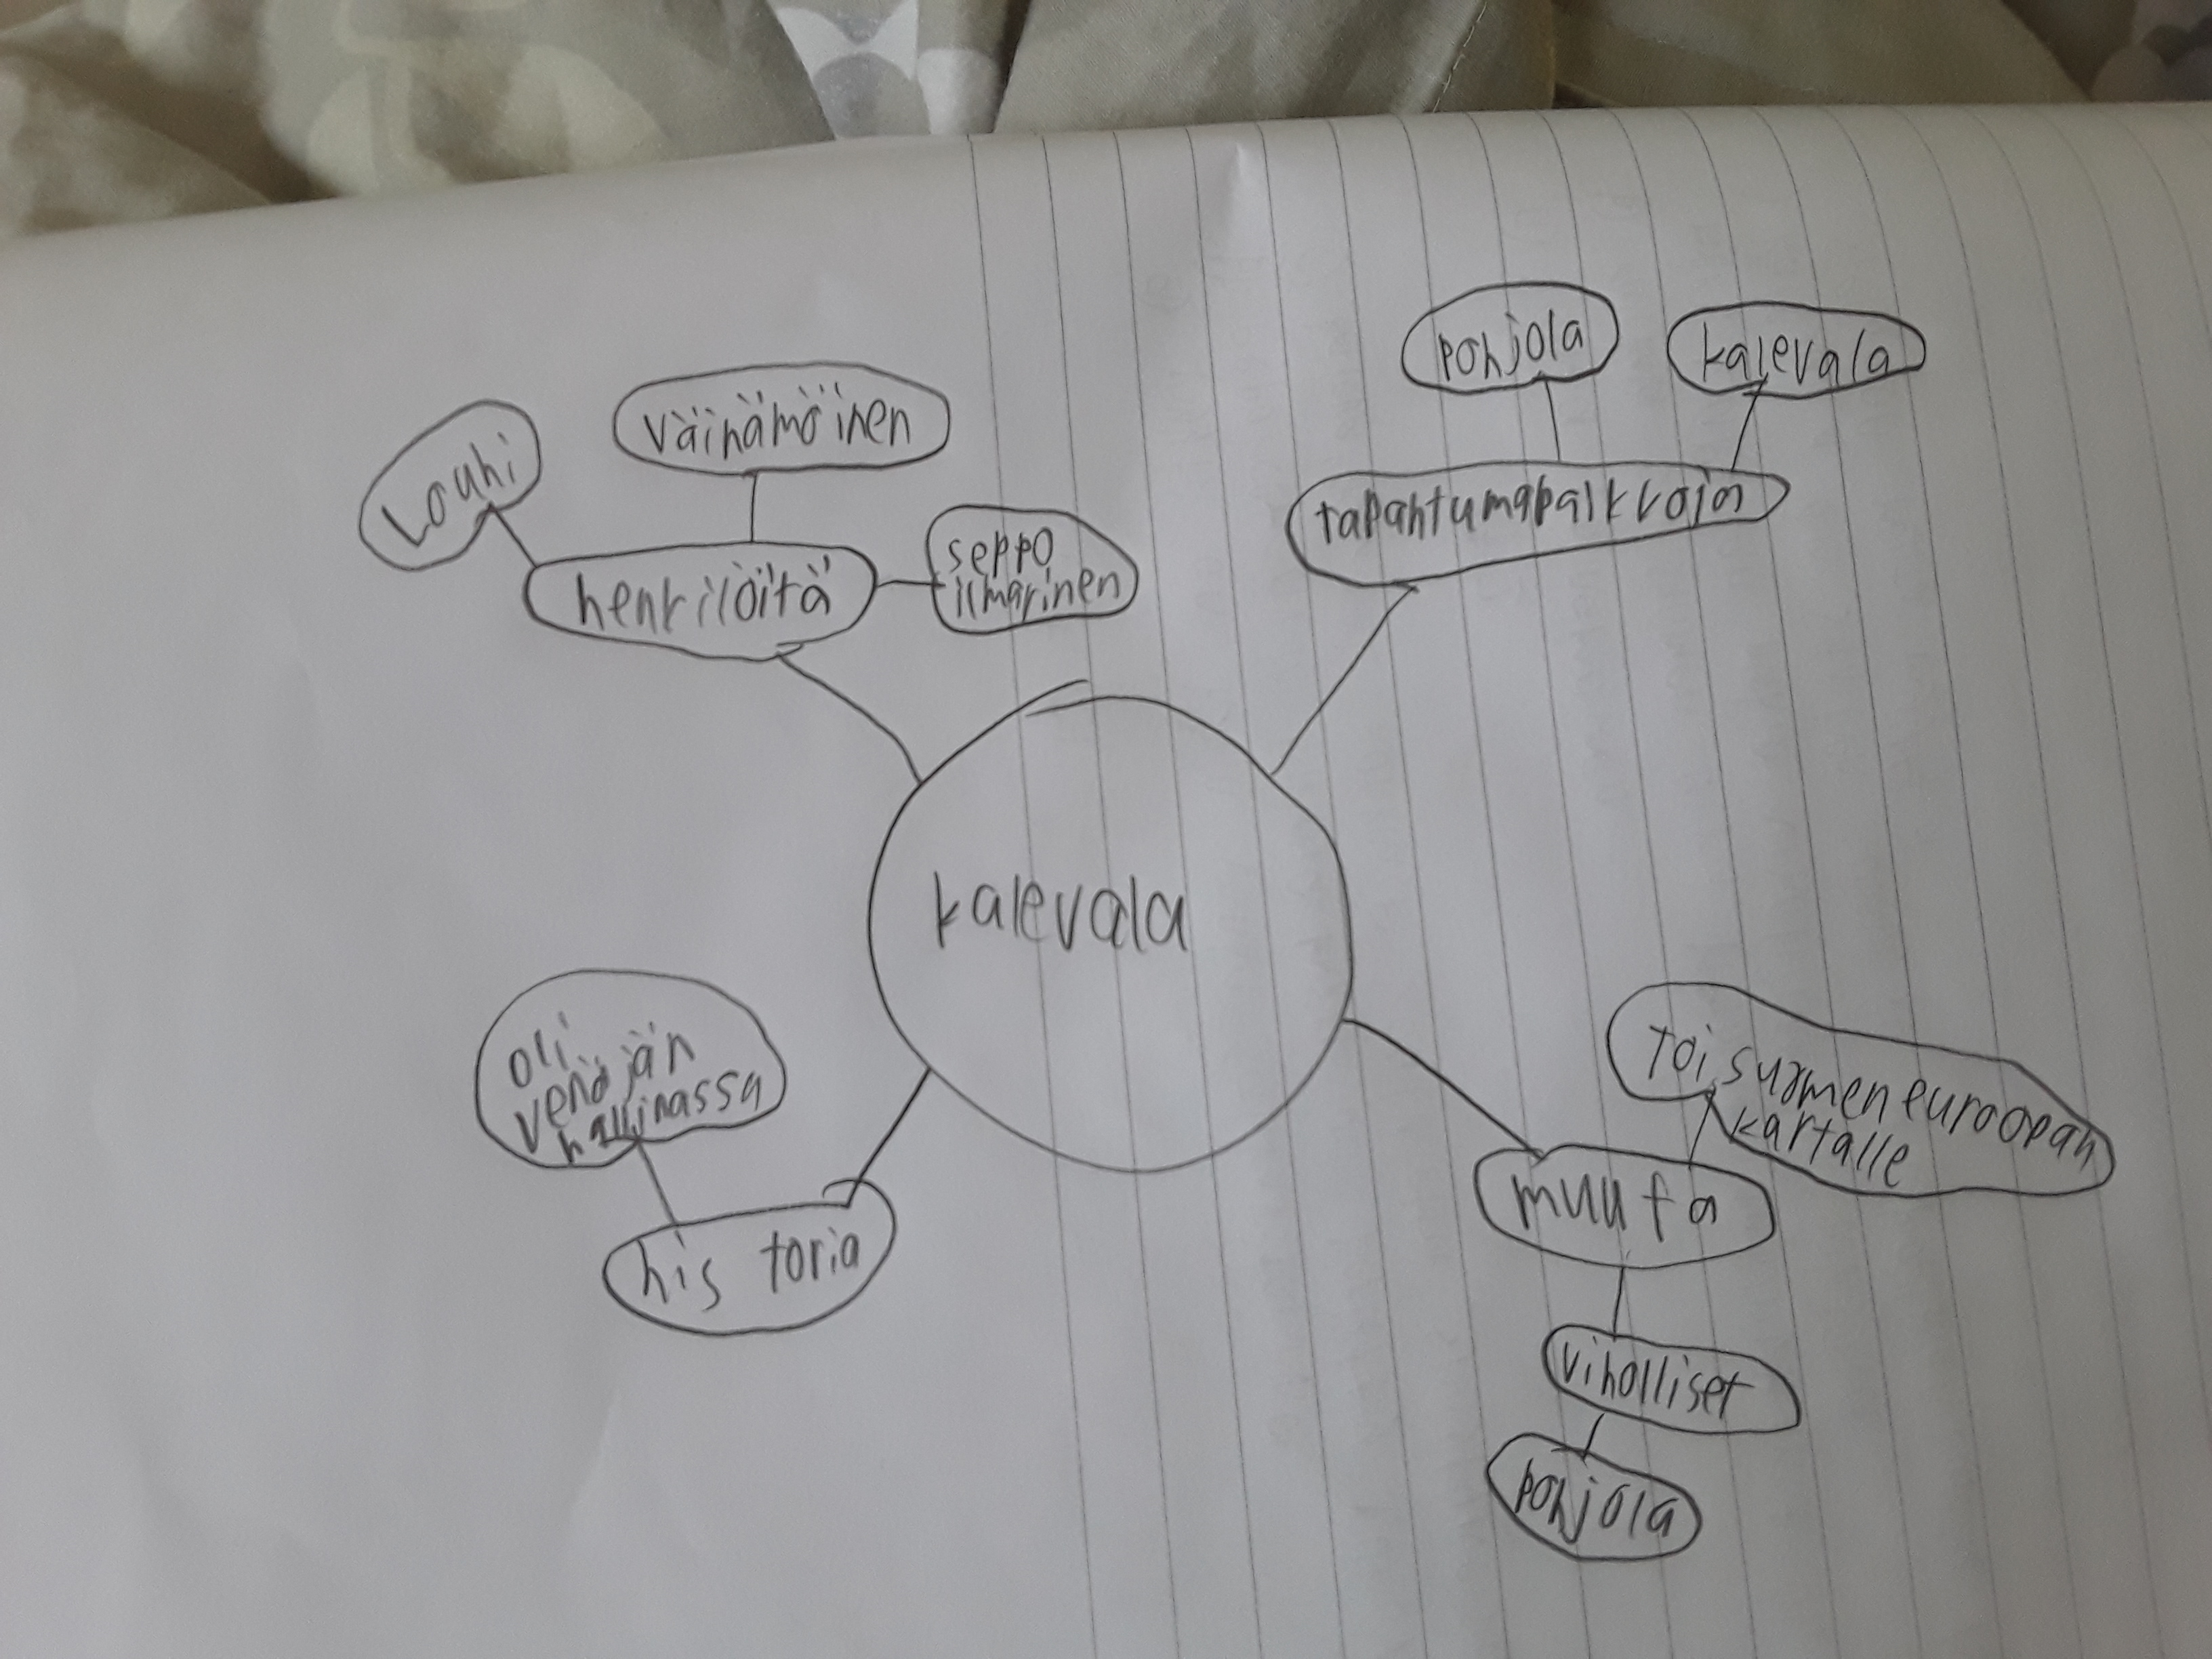 pohjola
kalevala
väinämöinen
Louhi
tapahtumapaikkoja
seppo
ilmarinen
henkilöitä
kalevala
oli
venäjän
hallinassa
toi suomen euroopan
kartalle
muuta
his toria
viholliset
pohjola